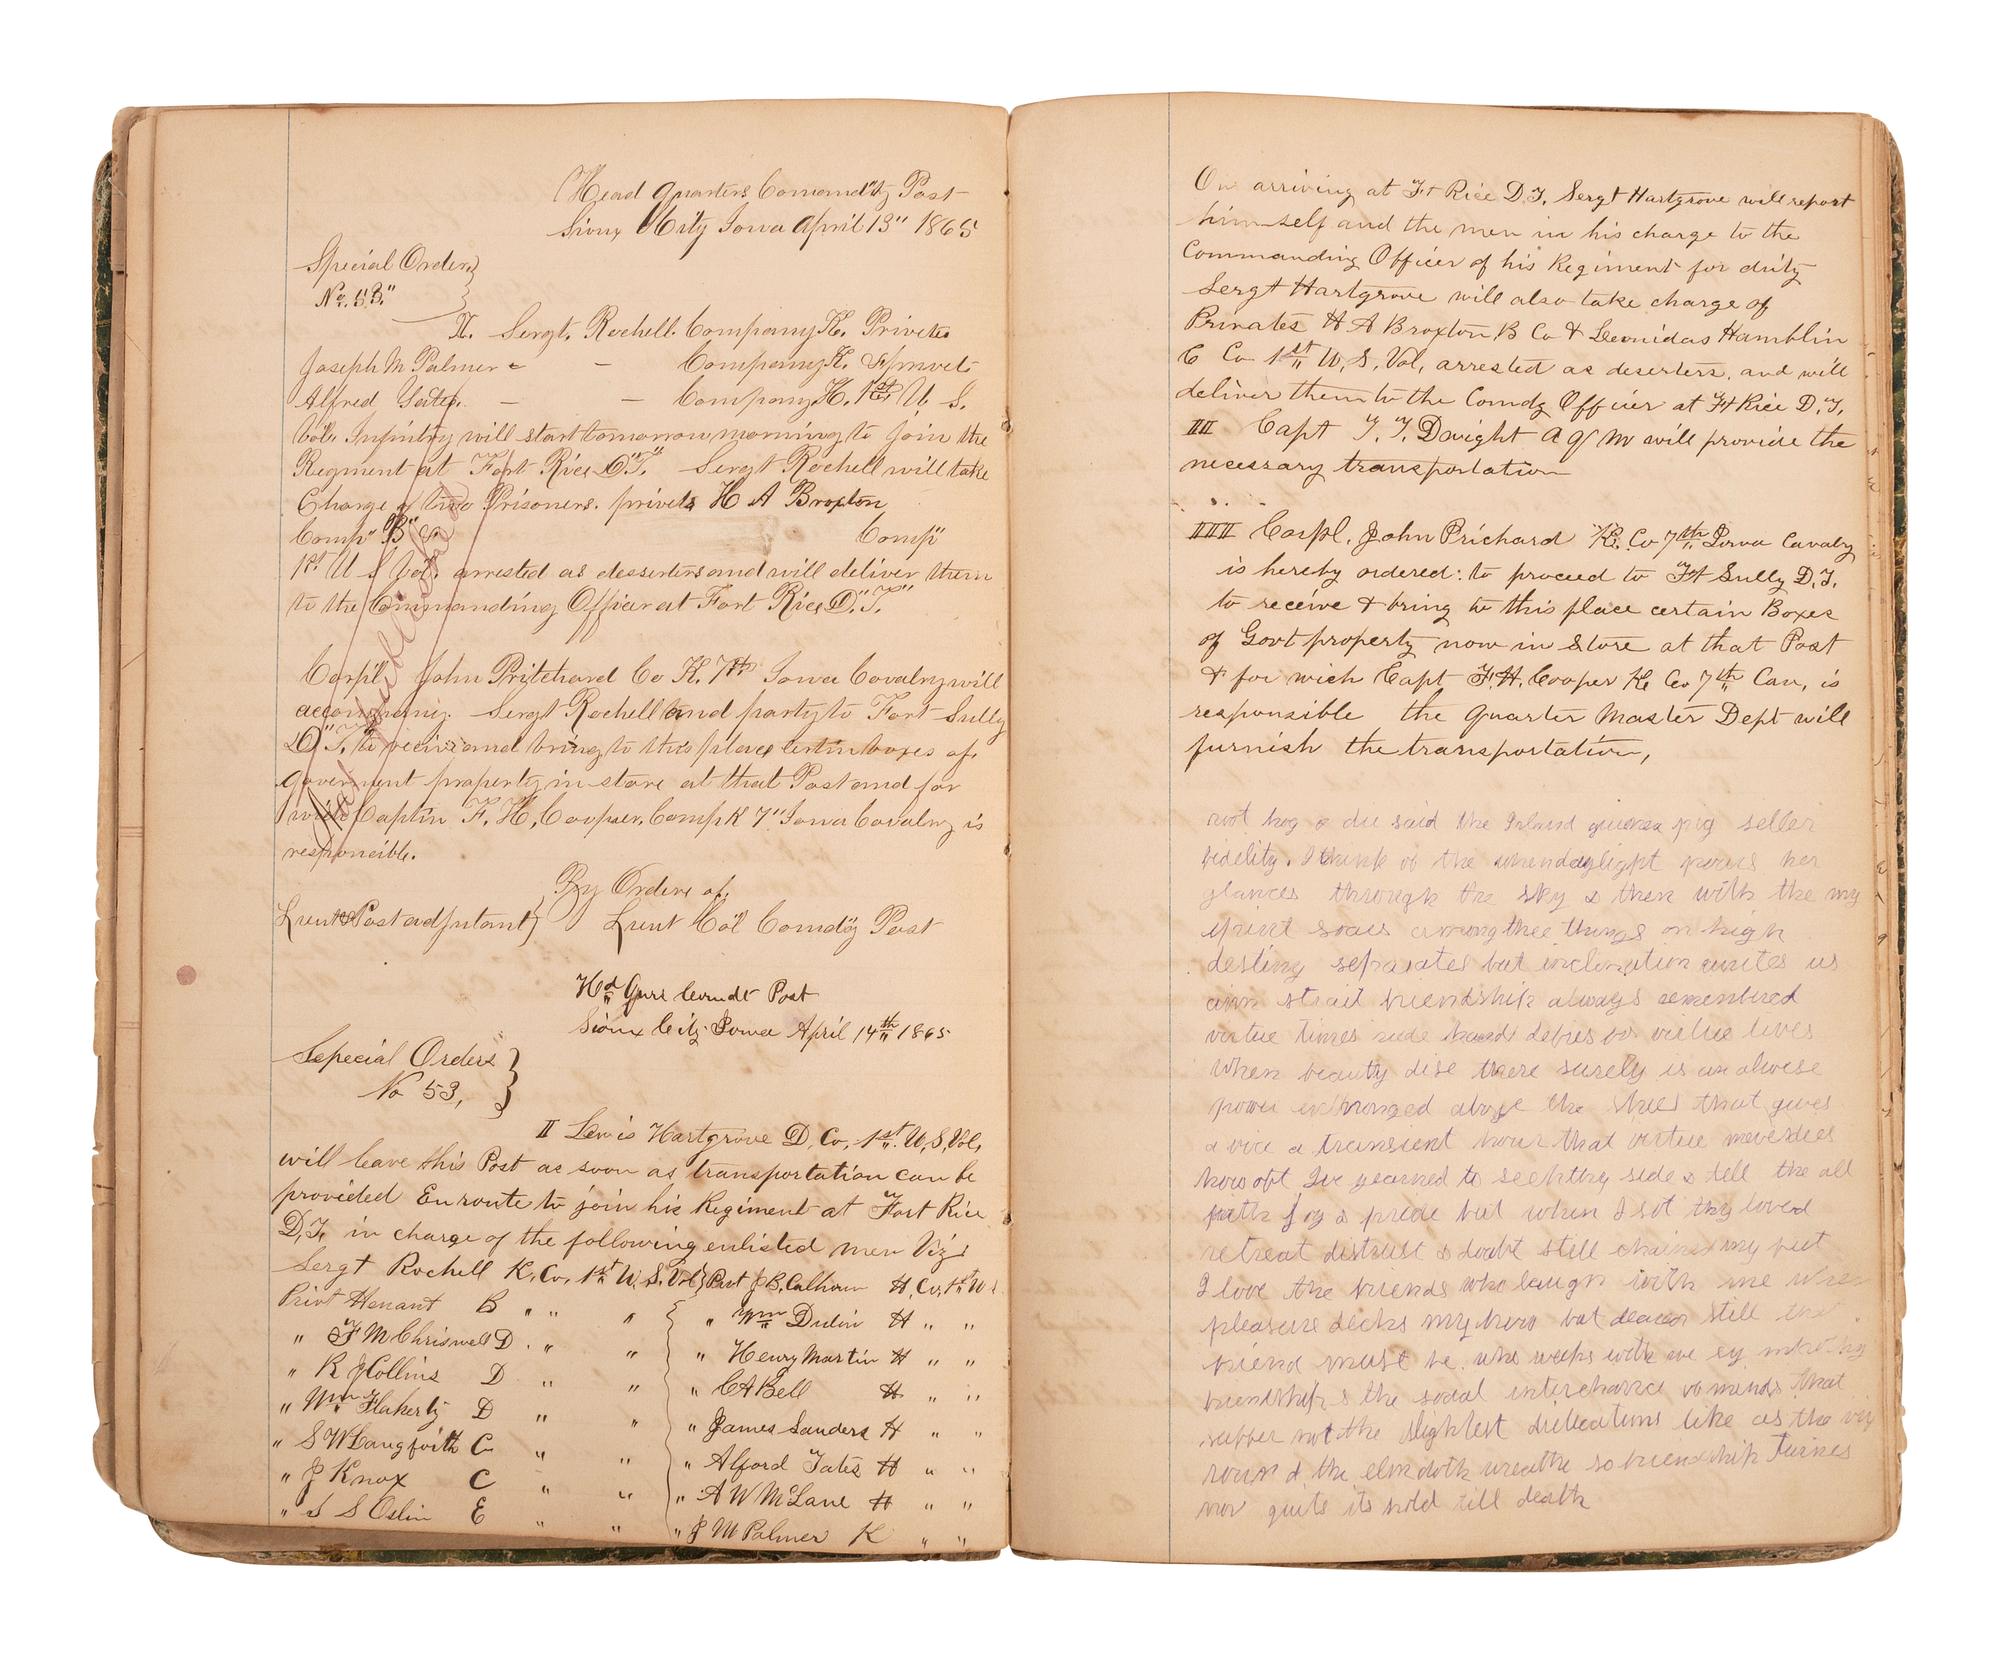 Head Quarters Comomd'g Post
Sioux City Iowa April 13" 1865
Special Order
No. 53."
II. Sergt. Rochell. Company K. Privets
Joseph M Palmer - - Company K. & privet
Alfred Yates. - - Company H. 1st U. S.
Vol. Infintry will start tomorrow morning to join the
Regment at Fort Rice D"T." Sergt Rochell will take
Charge of two Prisoners. privets H A Broxton
Comp" B" & Comp"
1st U S Vol. arrested as dessertersand will deliver them
to the Commanding Officer at Fort Rice D."T."
Corpl John Pritchard Co K. 7th Iowa Cavalry will
accompaniy. Sergt Rochell and party to Fort Sully
D"T. to reciveand bring to this place certin boxes of
goverment property in store at that Post and for
wich Captin F. H. Cooper. Comp K 7" Iowa Cavalry is
responcible.
By Ordere of.
Lieut & Post adjutant Lieut Col Comd'g Post
Hd Qurs Comdt Post
Sioux City Iowa April 14th 1865
Sepecial Orders
No 53,
II Lewis Hartgrove D, Co, 1st U, S, Vol,
will leave this Post as soon as transportation can be
provided Enroute to join his Regiment at Fort Rice
D,T, in charge of the following enlisted men Viz:
Sergt Rochell K, Co, 1st U. S. Vol Pivt J B. Calhoun H, Co, 1st U
Privt Henant B " " " " Wm Dulin H " "
" F M Chriswell D " " " Henry Martin H " "
" R J Collins D " " " C A Bell H " "
" Wm Flaherty D " " " James Sanders H " "
" S W Langforth C " " " Alford Yates H " "
" J Knox C " " " A W McLane H " "
" S S Oslin E " " " J M Palmer K " "
On arriving at Ft Rice D.T. Sergt Hartgrove will report
himself and the men in his charge to the
Commanding Officer of his Regiment for duty
Sergt Hartgrove will also take charge of
Privates H A Broxton B Co & Leonidas Hamblin
C Co 1st U, S, Vol, arrested as deserters, and will
deliver them to the Comdg Officer at Ft Rice D, T,
III Capt T. T. Dwight A Q M will provide the
necessary transportation
IIII Corpl. John Prichard K. Co 7th Iowa Cavalry
is hereby ordered: to proceed to Ft Sully D, T.
to receive & bring to this place certain Boxes
of Govt property now in Store at that Post
& for wich Capt F. H. Cooper K Co 7th Cav, is
responsible the Quarter Master Dept will
furnish the transportation,
root hog & die said the guinea pig seller
fidelity. I think of the when daylight pours her
glances through the sky & then with the my
spirit soars among thee things on high
destiny separates but inclination unites us
strait friendship always remembered
virtue times rude hand defies for virtue lives
when beauty dise there surely is an alwese
power enthronged above the skies that gives
a vice a transient hour that virtue never dies
how oft Ive yearned to seek thy side & tell the all
with joy & pride but when I sot thy loved
retreat distrust & doubt still chained my feet
I love the friends who laugh with me when
pleasure decks my brow but dearer still that
friend must be who weeps with me
friendship is the social interchance of minds that
suffer not the slightest like as the
round the elm doth wreathe so friendship twines
nor quits its hold till death